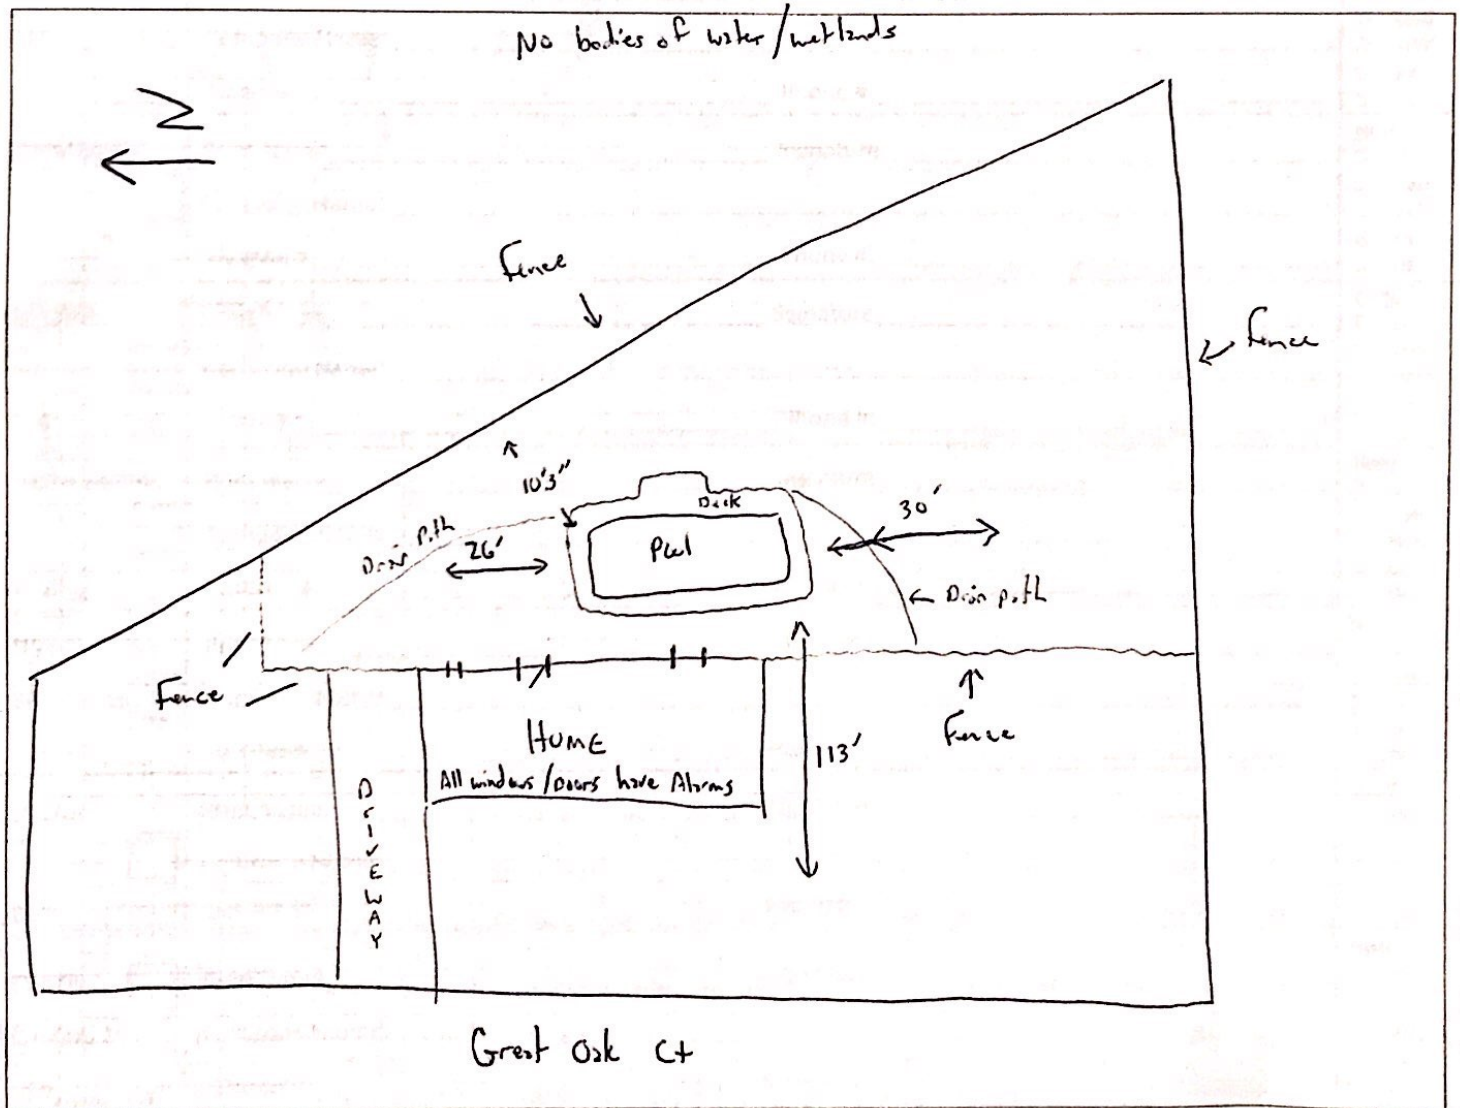 No bodies of water/wetlands
N
Fence
Fence
10'3"
Deck
30'
Drain Path
26'
Pool
Drain path
Fence
Fence
HOME
All windows/Doors have Alarms
113'
DriVEWAY
Great Oak Ct